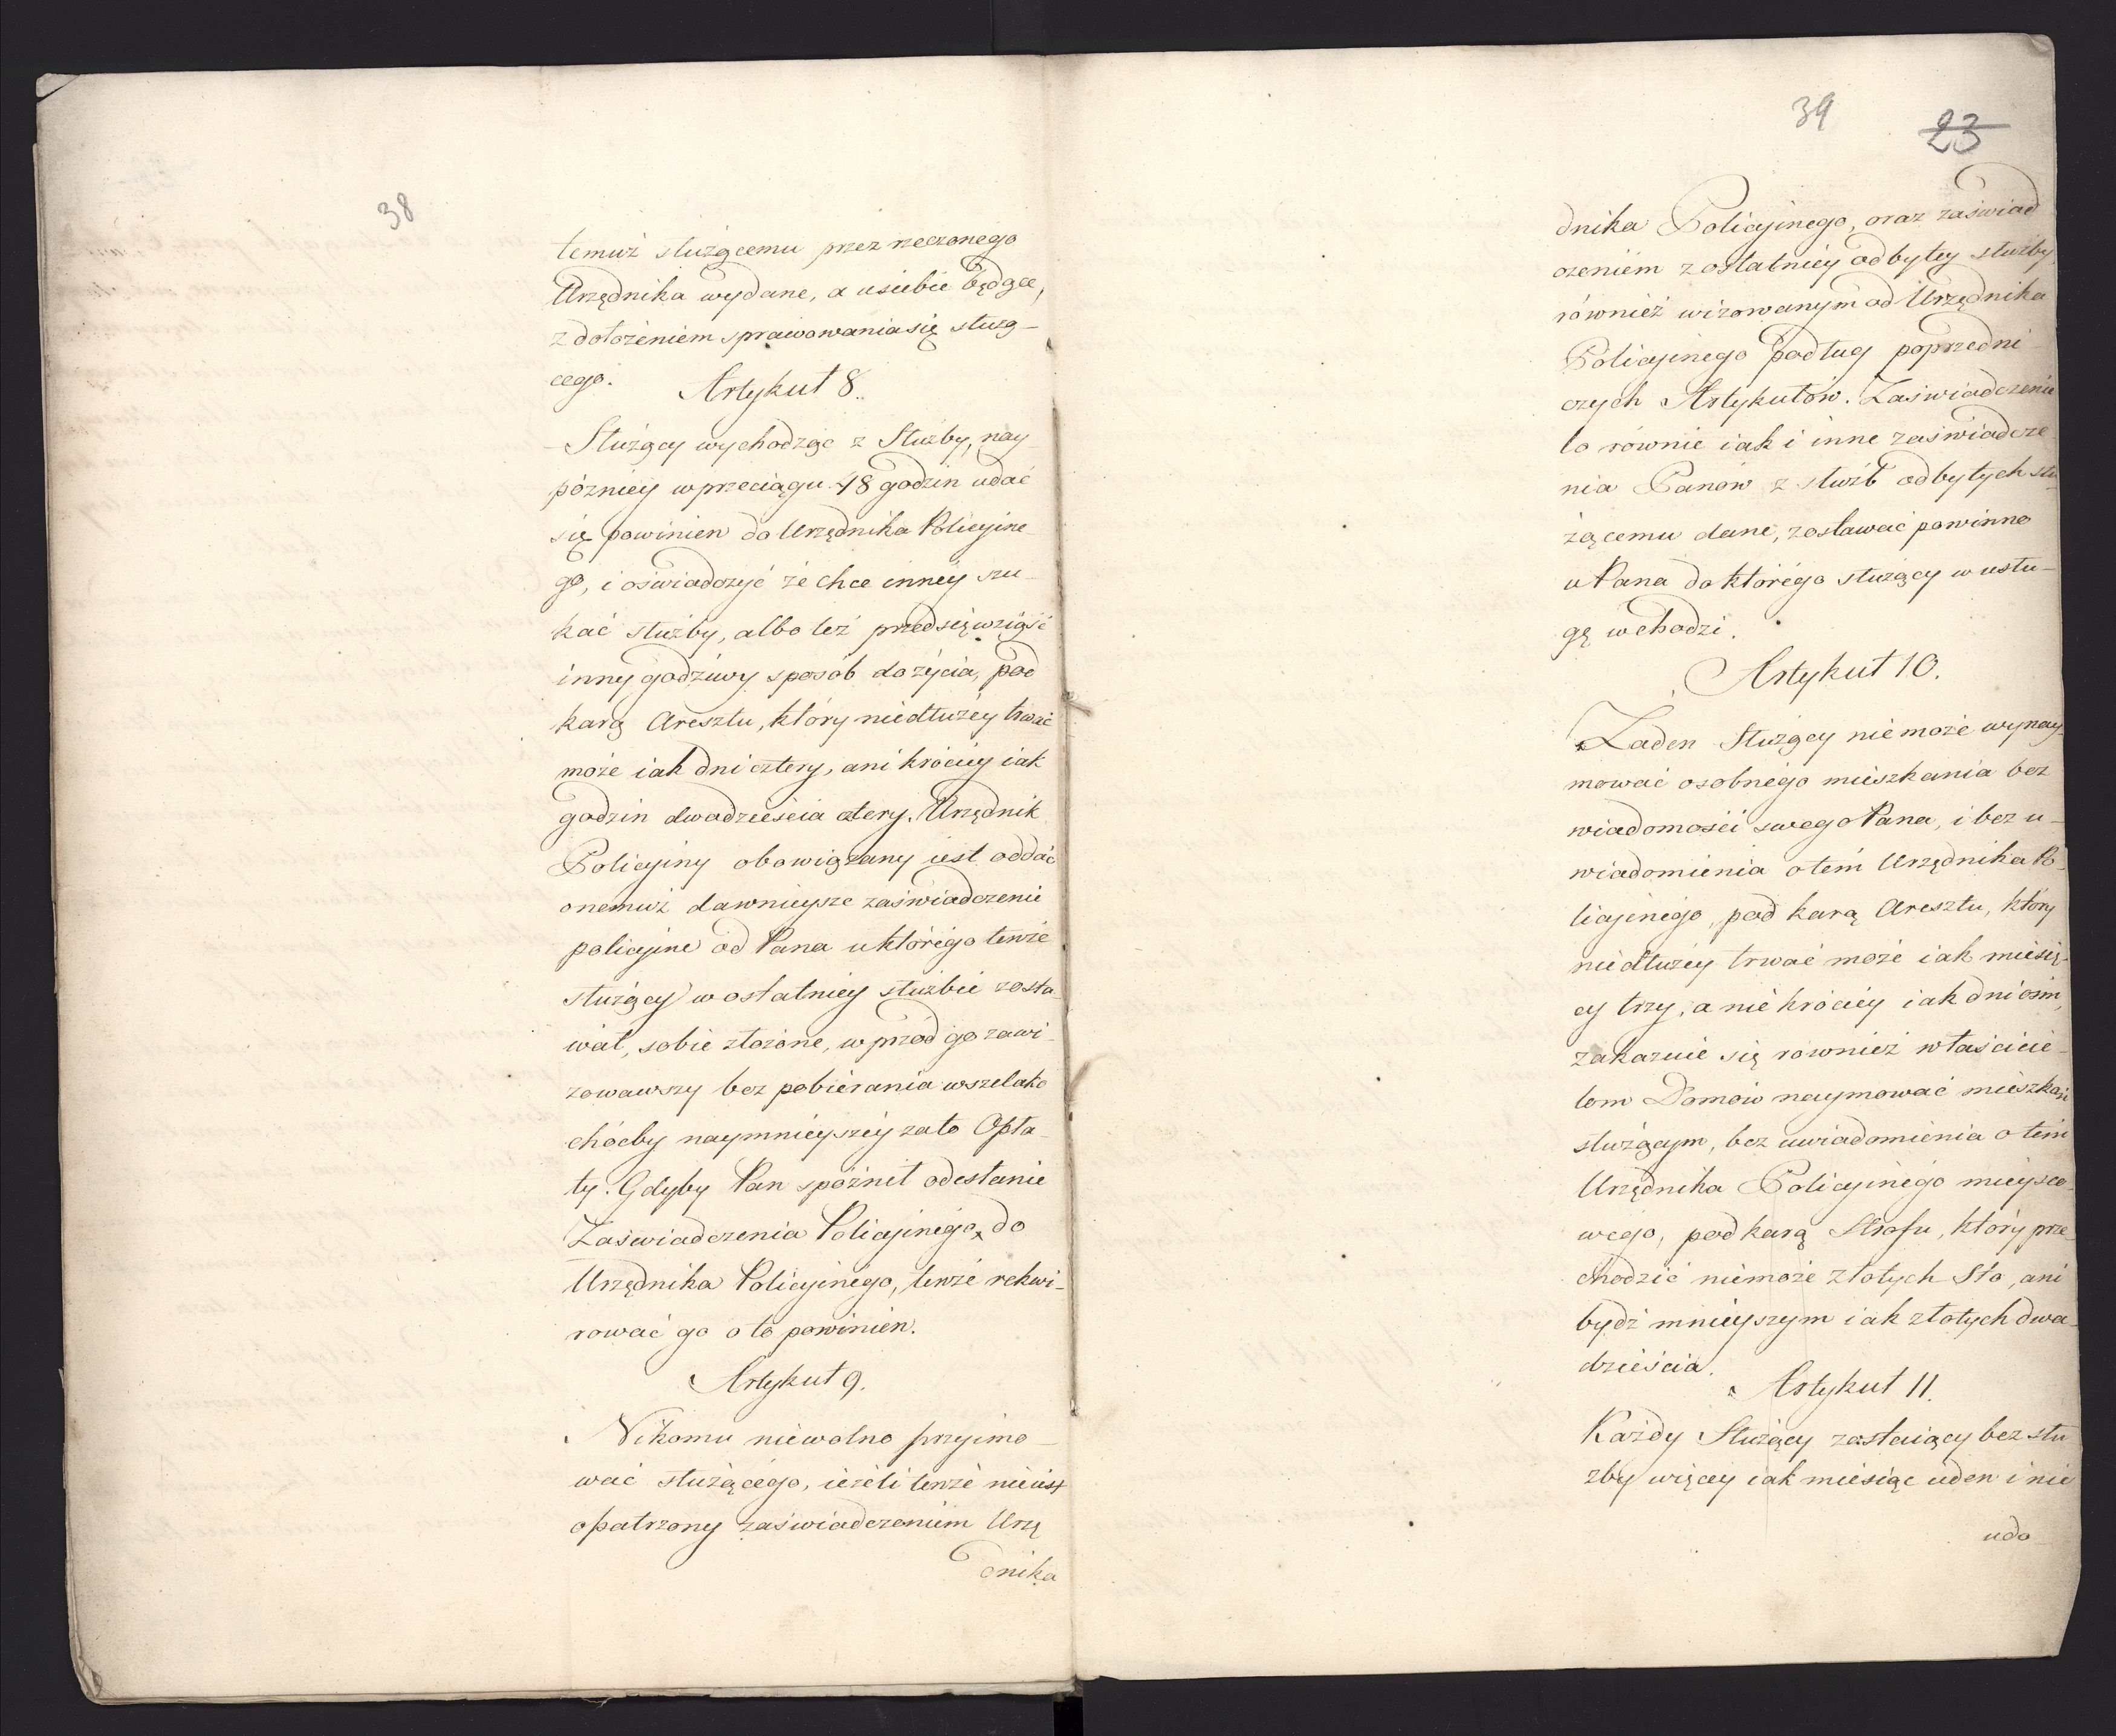 38
temuż służącemu przez rzeczonego
Urzędnika wydane, a u siebie będące,
z dołożeniem sprawowania się służą-
cego.
Artykuł 8.
Służący wychodząc z Służby, nay
późniey w przeciągu 48 godzin udać
się powinien do Urzędnika Policyine
go, i oświadczyć że chce inney szu-
kać służby, albo też przedsięwziąść
inny godziwy sposób do życia, pod
karą Aresztu, który niedłużey trwać
może iak dni cztery, ani króciey iak
godzin dwadzieścia cztery. Urzędnik
Policyiny obowiązany iest oddać
onemuż dawnieysze zaświadczenie
policyine od Pana u którego tenże
służący w ostatniey służbie zosta-
wał, sobie złożone, w przód go zawi-
zowawszy bez pobierania wszelako
choćby naymnieyszey za to Opła-
ty. Gdyby Pan spóźnił odesłanie
Zaświadczenia Policyinego do
Urzędnika Policyinego, tenże rekwi-
rować go o to powinien.
Artykuł 9.
Nikomu niewolno przyimo-
wać służącego, ieżeli tenże nieiest
opatrzony zaświadczeniem Urzę
dnika
39
23
dnika Policyinego, oraz zaświad
czeniem z ostatniey odbytey służby
również wizowanym od Urzędnika
Policyinego podług poprzedni-
czych Artykułów. Zaświadczenie
to równie iak i inne zaświadcze
nia Panów z służb odbytych słu-
żącemu dane, zostawać powinno
u Pana do którego służący w usłu-
gę wchodzi.
Artykuł 10.
Żaden Służący nie może wynay-
mować osobnego mieszkania bez
wiadomości swego Pana, i bez u-
wiadomienia o tem Urzędnika Po-
licyinego, pod karą Aresztu, który
niedłużey trwać może iak miesię-
cy trzy, a nie króciey iak dni ośm,
zakazuie się rownież właścicie-
lom Domów naymować mieszkań
służącym, bez uwiadomienia o tem
Urzędnika Policyinego mieysco-
wego, pod karą Strofu, który prze-
chodzić niemoże złotych Sto, ani
bydź mnieyszym iak złotych dwa-
dzieścia.
Artykuł 11.
Każdy Służący zostaiący bez słu
zby więcey iak miesiąc ieden i nie
udo-